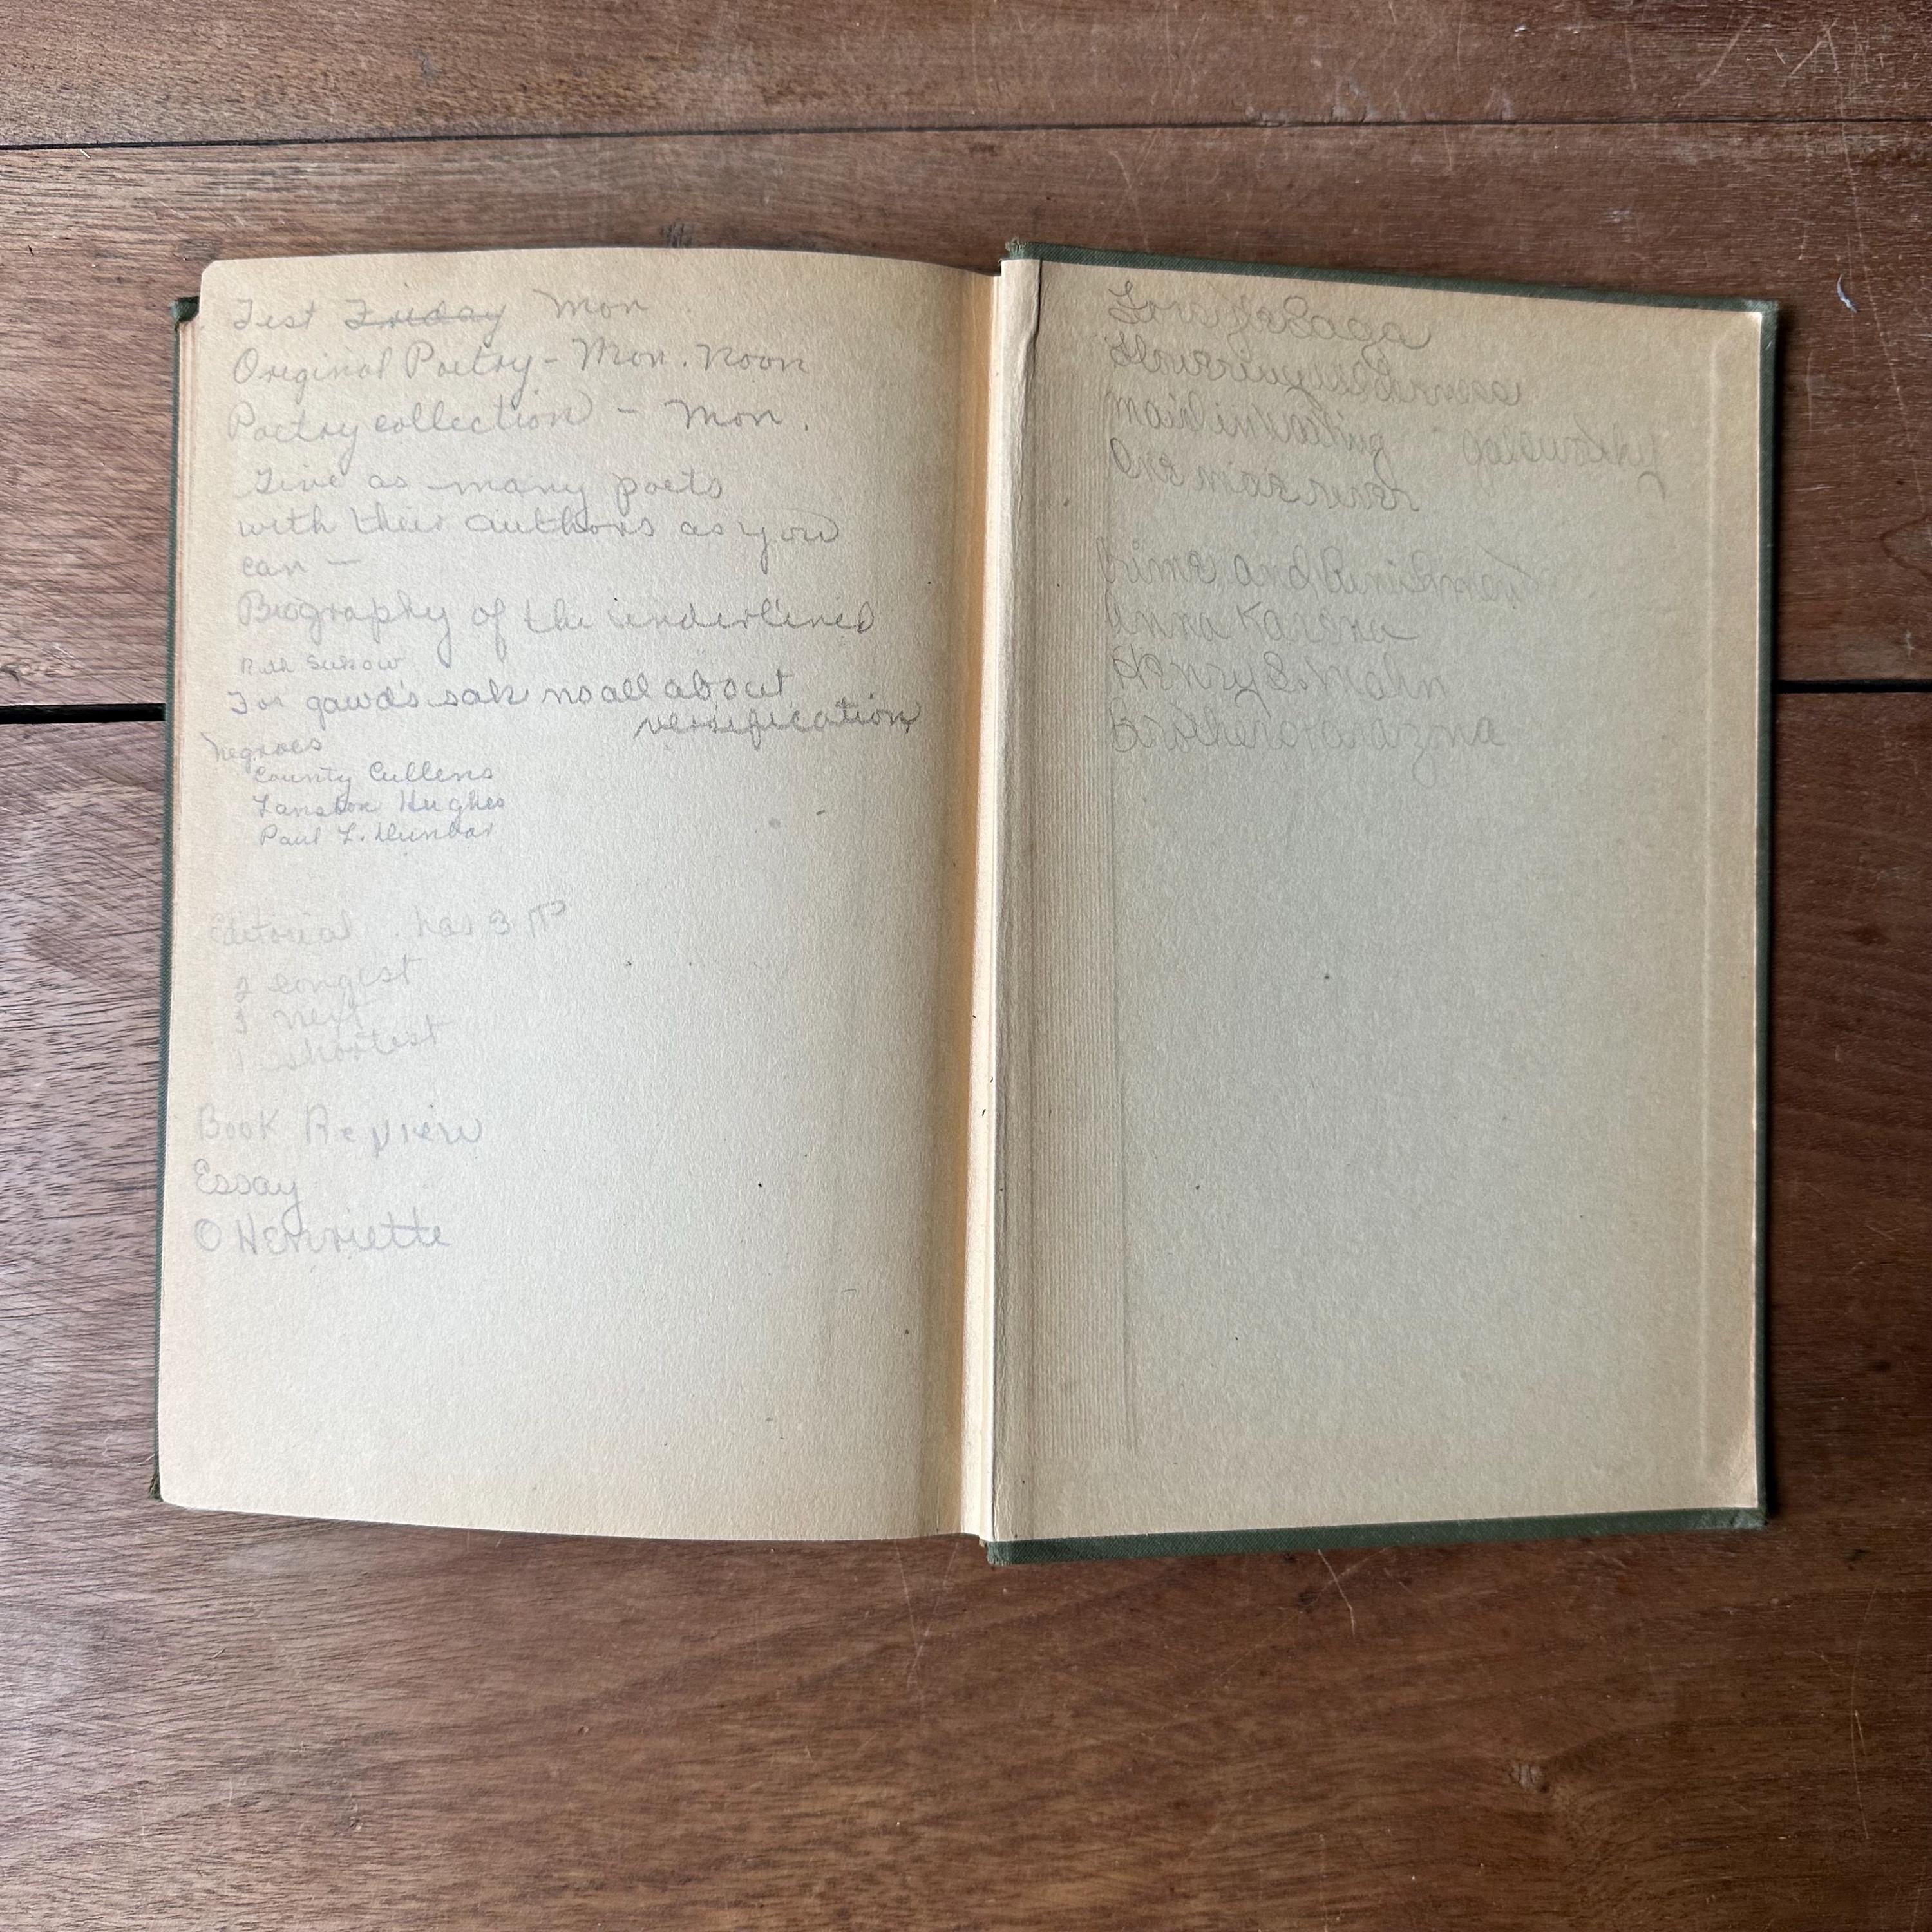 Test Friday Mon
Original Poetry - Mon. Noon
Poetry collection - Mon.
Give as many poets
with their authors as you
can -
Biography of the underlined
Ruth Sukow
For gawd's sak no all about
versification
Negroes
County Cullens
Lanston Hughes
Paul L. Dunbar
Editorial has 3 ¶
2 longest
3 next
1 shortest
Book Review
Essay
O Henriette
Forsyte Saga
Flowering Wilderness
Maid in waiting - Galsworthy
One more river
Crime and Punishment
Anna Karena
Henry Esmohn
Brothers